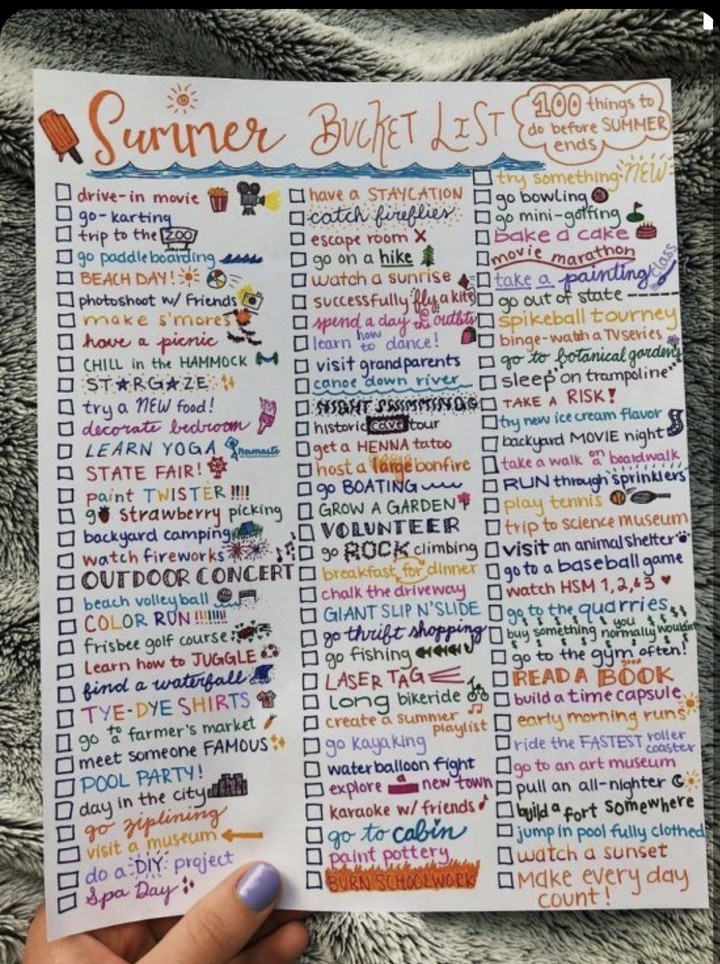 Summer BUCKET LIST
100 things to
do before SUMMER
ends
drive-in movie
go-karting
trip to the ZOO
go paddleboarding
BEACH DAY!
photoshoot w/ friends
make s'mores
have a picnic
CHILL in the HAMMOCK
STARGAZE
try a NEW food!
decorate bedroom
LEARN YOGA namaste
STATE FAIR!
paint TWISTER !!!!
go strawberry picking
backyard camping
watch fireworks
OUTDOOR CONCERT
beach volleyball
COLOR RUN!!!!!!!
frisbee golf course
Learn how to JUGGLE
find a waterfall
TYE-DYE SHIRTS
go to a farmer's market
meet someone FAMOUS
POOL PARTY!
day in the city
go ziplining
visit a museum
do a DIY project
Spa Day
have a STAYCATION
catch fireflies
escape room X
go on a hike
watch a sunrise
successfully fly a kite
spend a day @ the outlets
learn how to dance!
visit grandparents
canoe down river
NIGHT SWIMMING
historic cave tour
get a HENNA tattoo
host a large bonfire
go BOATING
GROW A GARDEN
VOLUNTEER
go ROCK climbing
breakfast for dinner
chalk the driveway
GIANT SLIP N'SLIDE
go thrift shopping
go fishing
LASER TAG
long bikeride
create a summer
playlist
go kayaking
waterballoon fight
explore a new town
karaoke w/ friends
go to cabin
paint pottery
BURN SCHOOLWORK
try something NEW
go bowling
go mini-golfing
bake a cake
movie marathon
take a painting class
go out of state
spikeball tourney
binge-watch a TV series
go to botanical gardens
sleep on trampoline
TAKE A RISK!
try new ice cream flavor
backyard MOVIE night
take a walk on a boardwalk
RUN through sprinklers
play tennis
trip to science museum
visit an animal shelter
go to a baseball game
watch HSM 1, 2, & 3 ♥
go to the quarries
buy something you normally wouldn't
go to the gym often!
READ A good BOOK
build a time capsule
early morning runs
ride the FASTEST roller
coaster
go to an art museum
pull an all-nighter
build a fort somewhere
jump in pool fully clothed
watch a sunset
Make every day
count!